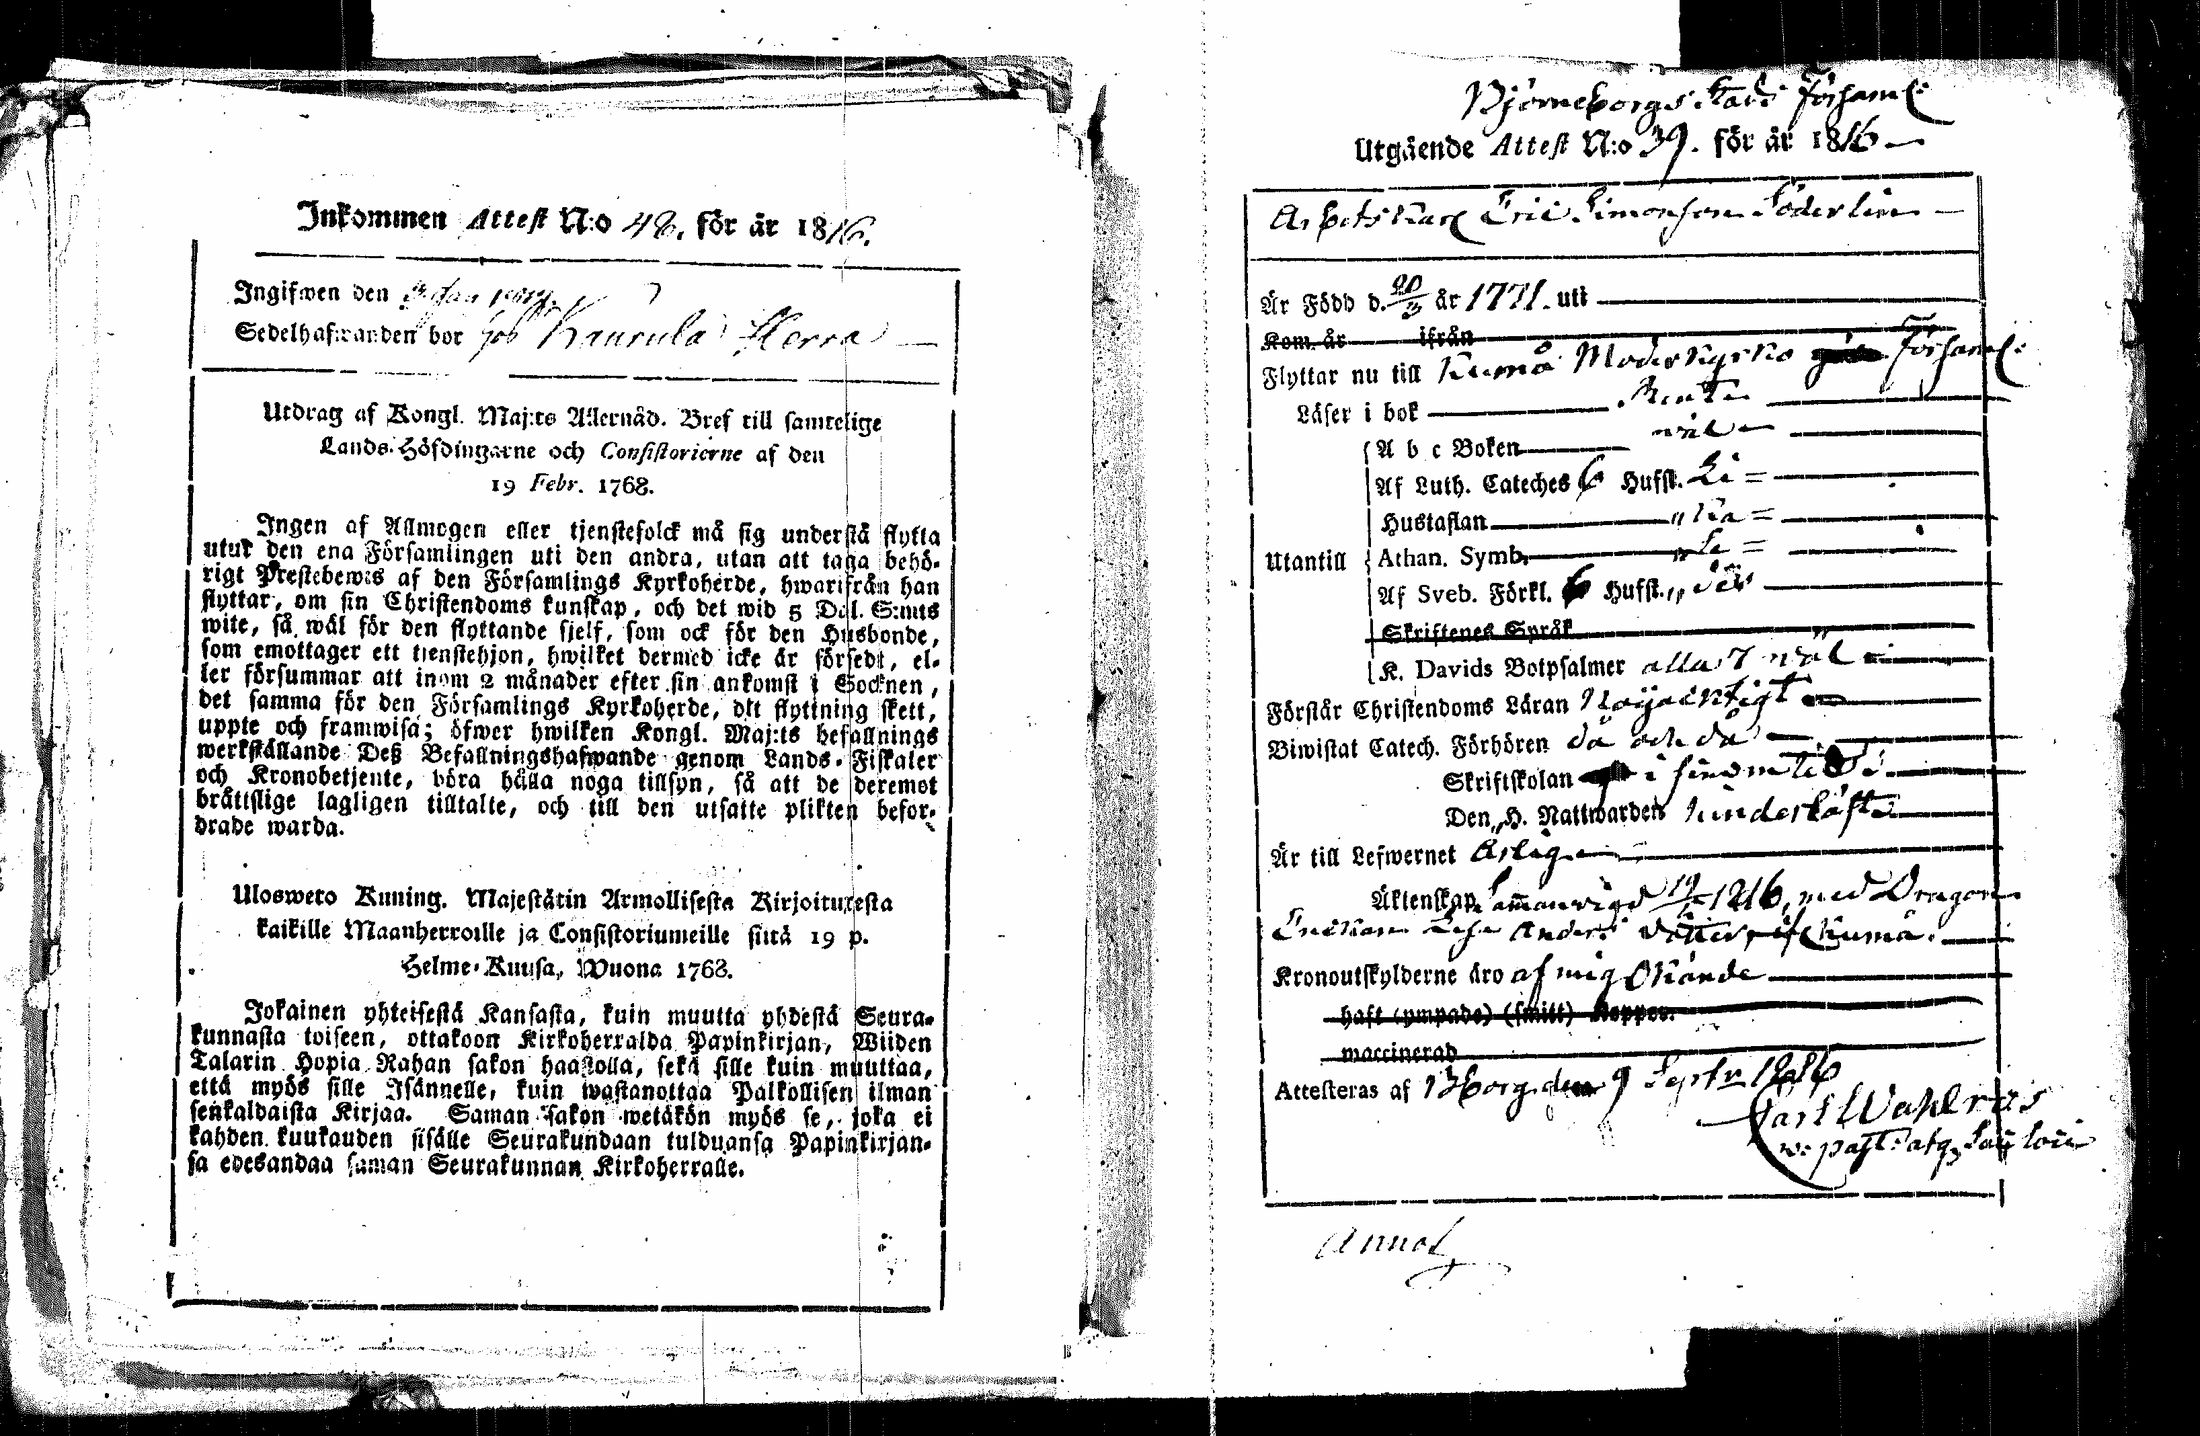 Inkommen Attest N:o 48. för år 1816.
Ingifwen den
Sedelhafwanden bor hos Kaurula Herra
Utdrag af Kongl. Maj:ts Allernåd. Bref till samtelige
Lands-Höfdingarne och Consistorierne af den
19 Febr. 1768.
Ingen af Allmogen eller tjenstefolck må sig understå flytta
utur den ena Församlingen uti den andra, utan att taga behö-
rigt Prestebewis af den Församlings Kyrkoherde, hwarifrån han
flyttar, om sin Christendoms kunskap, och det wid 5 Dal. S:mts
wite, så wäl för den flyttande sjelf, som ock för den Husbonde,
som emottager ett tienstehjon, hwilket dermed icke är försedt, el-
ler försummar att inom 2 månader efter sin ankomst i Socknen,
det samma för den Församlings Kyrkoherde, dit flyttning skett,
uppte och framwisa; öfwer hwilken Kongl. Maj:ts befallnings
werkställande Deß Befallningshafwande genom Lands-Fiskaler
och Kronobetjente, böra hålla noga tillsyn, så att de deremot
bråttslige lagligen tilltalte, och till den utsatte plikten befor-
drade warda.
Ulosweto Kuning. Majestätin Armollisesta Kirjoituxesta
kaikille Maanherroille ja Consistoriumeille siitä 19 p.
Helme-Kuusa, Wuona 1768.
Jokainen yhteisestä Kansasta, kuin muutta yhdestä Seura-
kunnasta toiseen, ottakoon Kirkoherralda Papinkirjan, Wiiden
Talarin Hopia Rahan sakon haastolla, sekä sille kuin muuttaa,
että myös sille Isännelle, kuin wastanottaa Palkollisen ilman
senkaldaista Kirjaa. Saman sakon wetäkön myös se, joka ei
kahden kuukauden sisälle Seurakundaan tulduansa Papinkirjan-
sa edesandaa saman Seurakunnan Kirkoherralle.
Björneborgs Stads Församl:
Utgående Attest N:o 39. för år 1816
Arbetskarl Eric Simonsson Söderlin
Är Född d. 20/3 år 1771. uti
Kom år ifrån
Flyttar nu till Kumå Moderkyrko Församl:
Läser i bok
A b c Boken wäl
Af Luth. Cateches 6 Hufst.
Hustaflan
Utantill Athan. Symb.
Af Sveb. Förkl. 6 Hufst.
Skriftenes Språk
K. Davids Botpsalmer alla 7 wäl
Förstår Christendoms Läran Nöjacktigt
Biwistat Catech. Förhören då och då
Skriftskolan i sinom tid
Den H. Nattwarden
Är till Lefwernet Ärlig
Äktenskap Sammanwigd 1816, med Dragon
Enckan Lisa Anders dotter, i Kumå.
Kronoutskylderne äro af mig Okände
haft (ympade) (smitt) Koppor.
maccinerad
Attesteras af Bborg den 9 Septr 1816
Carl Wahlroos
Annot